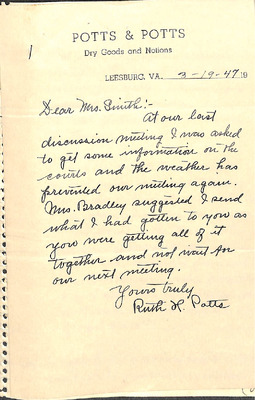 1
POTTS & POTTS
Dry Goods and Notions
LEESBURG, VA. 3-19-47 19
Dear Mrs. Smith:-
At our last
discussion meeting I was asked
to get some information on the
courts and the weather has
prevented our meeting again.
Mrs. Bradley suggested I send
what I had gotten to you as
you were getting all of it
together and not wait for
our next meeting.
Yours truly,
Ruth H. Potts